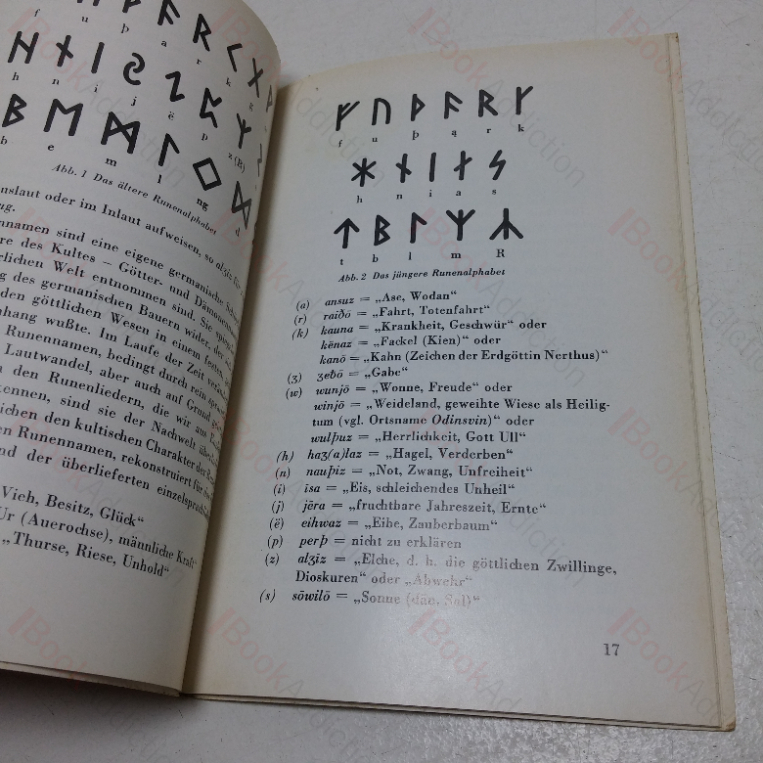 f u þ a r k
h n i j ë p z (R)
b e m l ng d
Abb. 1 Das ältere Runenalphabet
nslaut oder im Inlaut aufweisen, so alʒiz für
ug.
ennamen sind eine eigene germanische
re des Kultes – Götter- und
rlichen Welt entnommen sind. Sie
g des germanischen Bauern wider, der
den göttlichen Wesen in einem festen
hang wußte. Im Laufe der Zeit
Runennamen, bedingt durch rein
Lautwandel, aber auch auf Grund
n den Runenliedern, die wir aus
kennen, sind sie der Nachwelt
eichen den kultischen Charakter der
en Runennamen, rekonstruiert für
nd der überlieferten
Vieh, Besitz, Glück“
Ur (Auerochse), männliche Kraft“
„Thurse, Riese, Unhold“
ᚠ ᚢ ᚦ ᚨ ᚱ ᚴ
f u þ ą r k
ᚼ ᚾ ᛁ ᛅ ᛋ
h n i a s
ᛏ ᛒ ᛚ ᛘ ᛦ
t b l m R
Abb. 2 Das jüngere Runenalphabet
(a) ansuz = „Ase, Wodan“
(r) raiðō = „Fahrt, Totenfahrt“
(k) kauna = „Krankheit, Geschwür“ oder
kēnaz = „Fackel (Kien)“ oder
kanō = „Kahn (Zeichen der Erdgöttin Nerthus)“
(ʒ) ʒebō = „Gabe“
(w) wunjō = „Wonne, Freude“ oder
winjō = „Weideland, geweihte Wiese als Heilig-
tum (vgl. Ortsname Odinsvin)“ oder
wulþuz = „Herrlichkeit, Gott Ull“
(h) haʒ(a)laz = „Hagel, Verderben“
(n) nauþiz = „Not, Zwang, Unfreiheit“
(i) īsa = „Eis, schleichendes Unheil“
(j) jēra = „fruchtbare Jahreszeit, Ernte“
(ë) eihwaz = „Eibe, Zauberbaum“
(p) perþ = nicht zu erklären
(z) alʒiz = „Elche, d. h. die göttlichen Zwillinge,
Dioskuren“ oder „Abwehr“
(s) sōwilō = „Sonne (dän. Sol)“
17